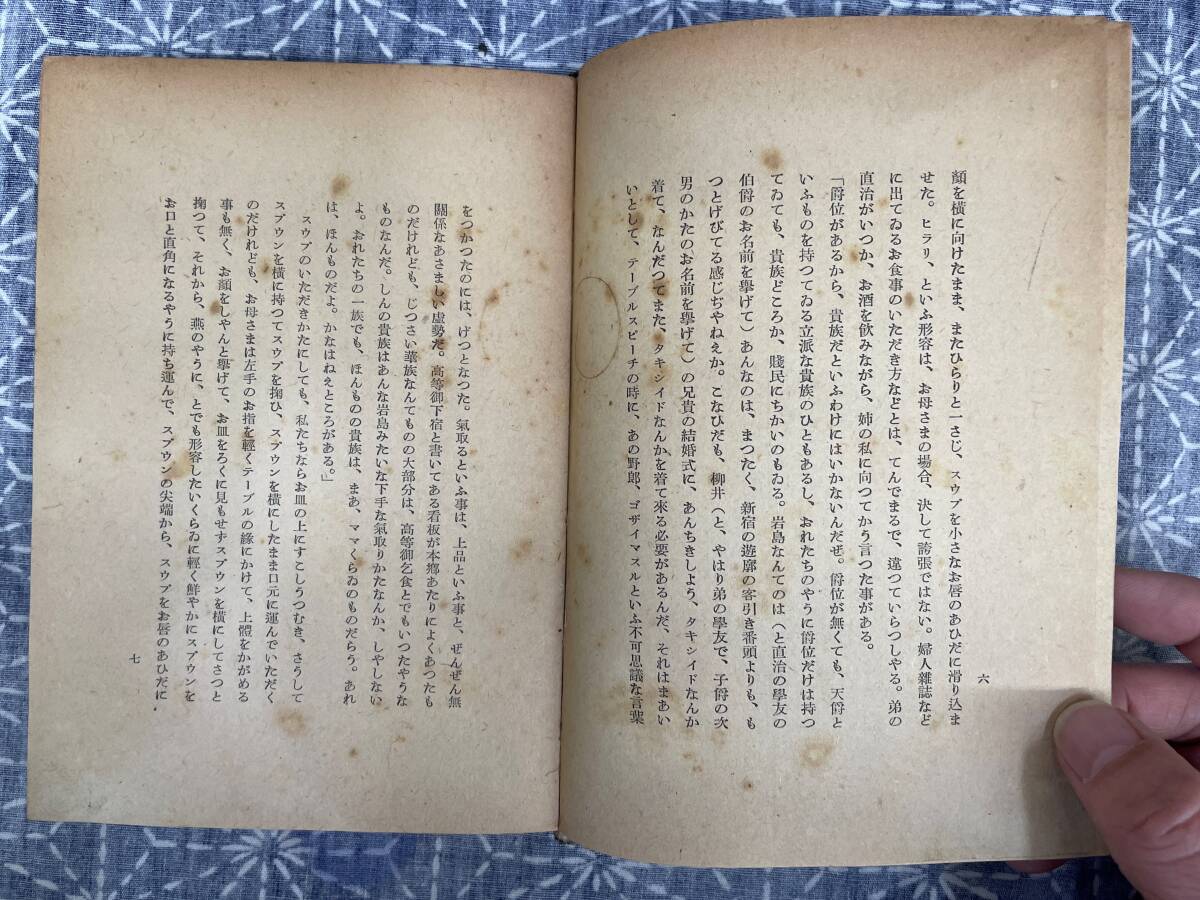 顏を横に向けたまま、またひらりと一さじ、スウプを小さなお唇のあひだに滑り込ま
せた。ヒラリ、といふ形容は、お母さまの場合、決して誇張ではない。婦人雜誌など
に出てゐるお食事のいただき方などとは、てんでまるで、違つていらつしやる。弟の
直治がいつか、お酒を飮みながら、姉の私に向つてかう言つた事がある。
「爵位があるから、貴族だといふわけにはいかないんだぜ。爵位が無くても、天爵と
いふものを持つてゐる立派な貴族のひともあるし、おれたちのやうに爵位だけは持つ
てゐても、貴族どころか、賤民にちかいのもゐる。岩島なんてのは（と直治の學友の
伯爵のお名前を擧げて）あんなのは、まつたく、新宿の遊廓の客引き番頭よりも、も
つとげびてる感じぢやねえか。こなひだも、柳井（と、やはり弟の學友で、子爵の次
男のかたのお名前を擧げて）の兄貴の結婚式に、あんちきしよう、タキシイドなんか
着て、なんだつてまた、タキシイドなんかを着て來る必要があるんだ、それはまあい
いとして、テーブルスピーチの時に、あの野郎、ゴザイマスルといふ不可思議な言葉
六
をつかつたのには、げつとなつた。氣取るといふ事は、上品といふ事と、ぜんぜん無
關係なあさましい虚勢だ。高等御下宿と書いてある看板が本郷あたりによくあつたも
のだけれども、じつさい華族なんてものの大部分は、高等御乞食とでもいつたやうな
ものなんだ。しんの貴族はあんな岩島みたいな下手な氣取りかたなんか、しやしない
よ。おれたちの一族でも、ほんものの貴族は、まあ、ママくらゐのものだらう。あれ
は、ほんものだよ。かなはねえところがある。」
スウプのいただきかたにしても、私たちならお皿の上にすこしうつむき、さうして
スプウンを横に持つてスウプを掬ひ、スプウンを横にしたまま口元に運んでいただく
のだけれども、お母さまは左手のお指を輕くテーブルの緣にかけて、上體をかがめる
事も無く、お顏をしやんと擧げて、お皿をろくに見もせずスプウンを横にしてさつと
掬つて、それから、燕のやうに、とでも形容したいくらゐに輕く鮮やかにスプウンを
お口と直角になるやうに持ち運んで、スプウンの尖端から、スウプをお唇のあひだに
七